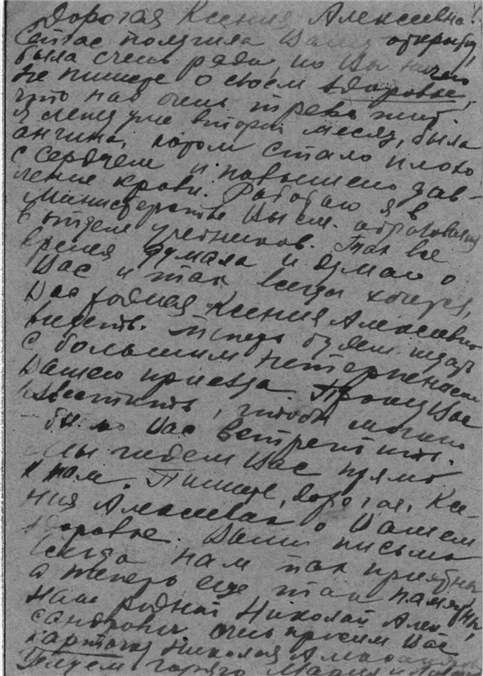 Дорогая Ксения Алексеевна!
Сейчас получила Вашу открытку,
была очень рада, но Вы ничего
не пишете о своем здоровье,
что нас очень тревожит.
Я лежу уже второй месяц, была
ангина, потом стало плохо
с сердцем и повышено дав-
ление крови. Работаю я в
Министерстве Высш. образования
в отделе учебников. Так все
время думала и думаю о
Вас и так всегда хочется,
Вас родная Ксения Алексеевна
видеть. Теперь будем ждать
с большим нетерпением
Вашего приезда. Прошу Вас
известить, чтобы можно
было Вас встретить.
Мы ждем Вас прямо
к нам. Пишите, дорогая, Ксе-
ния Алексеевна о Вашем
здоровье. Ваши письма
всегда нам так приятны
а теперь еще так памятны,
наш родной Николай Алек-
сандрович очень просим Вас
карточку Николая Александр.
Целуем горячо Мария и